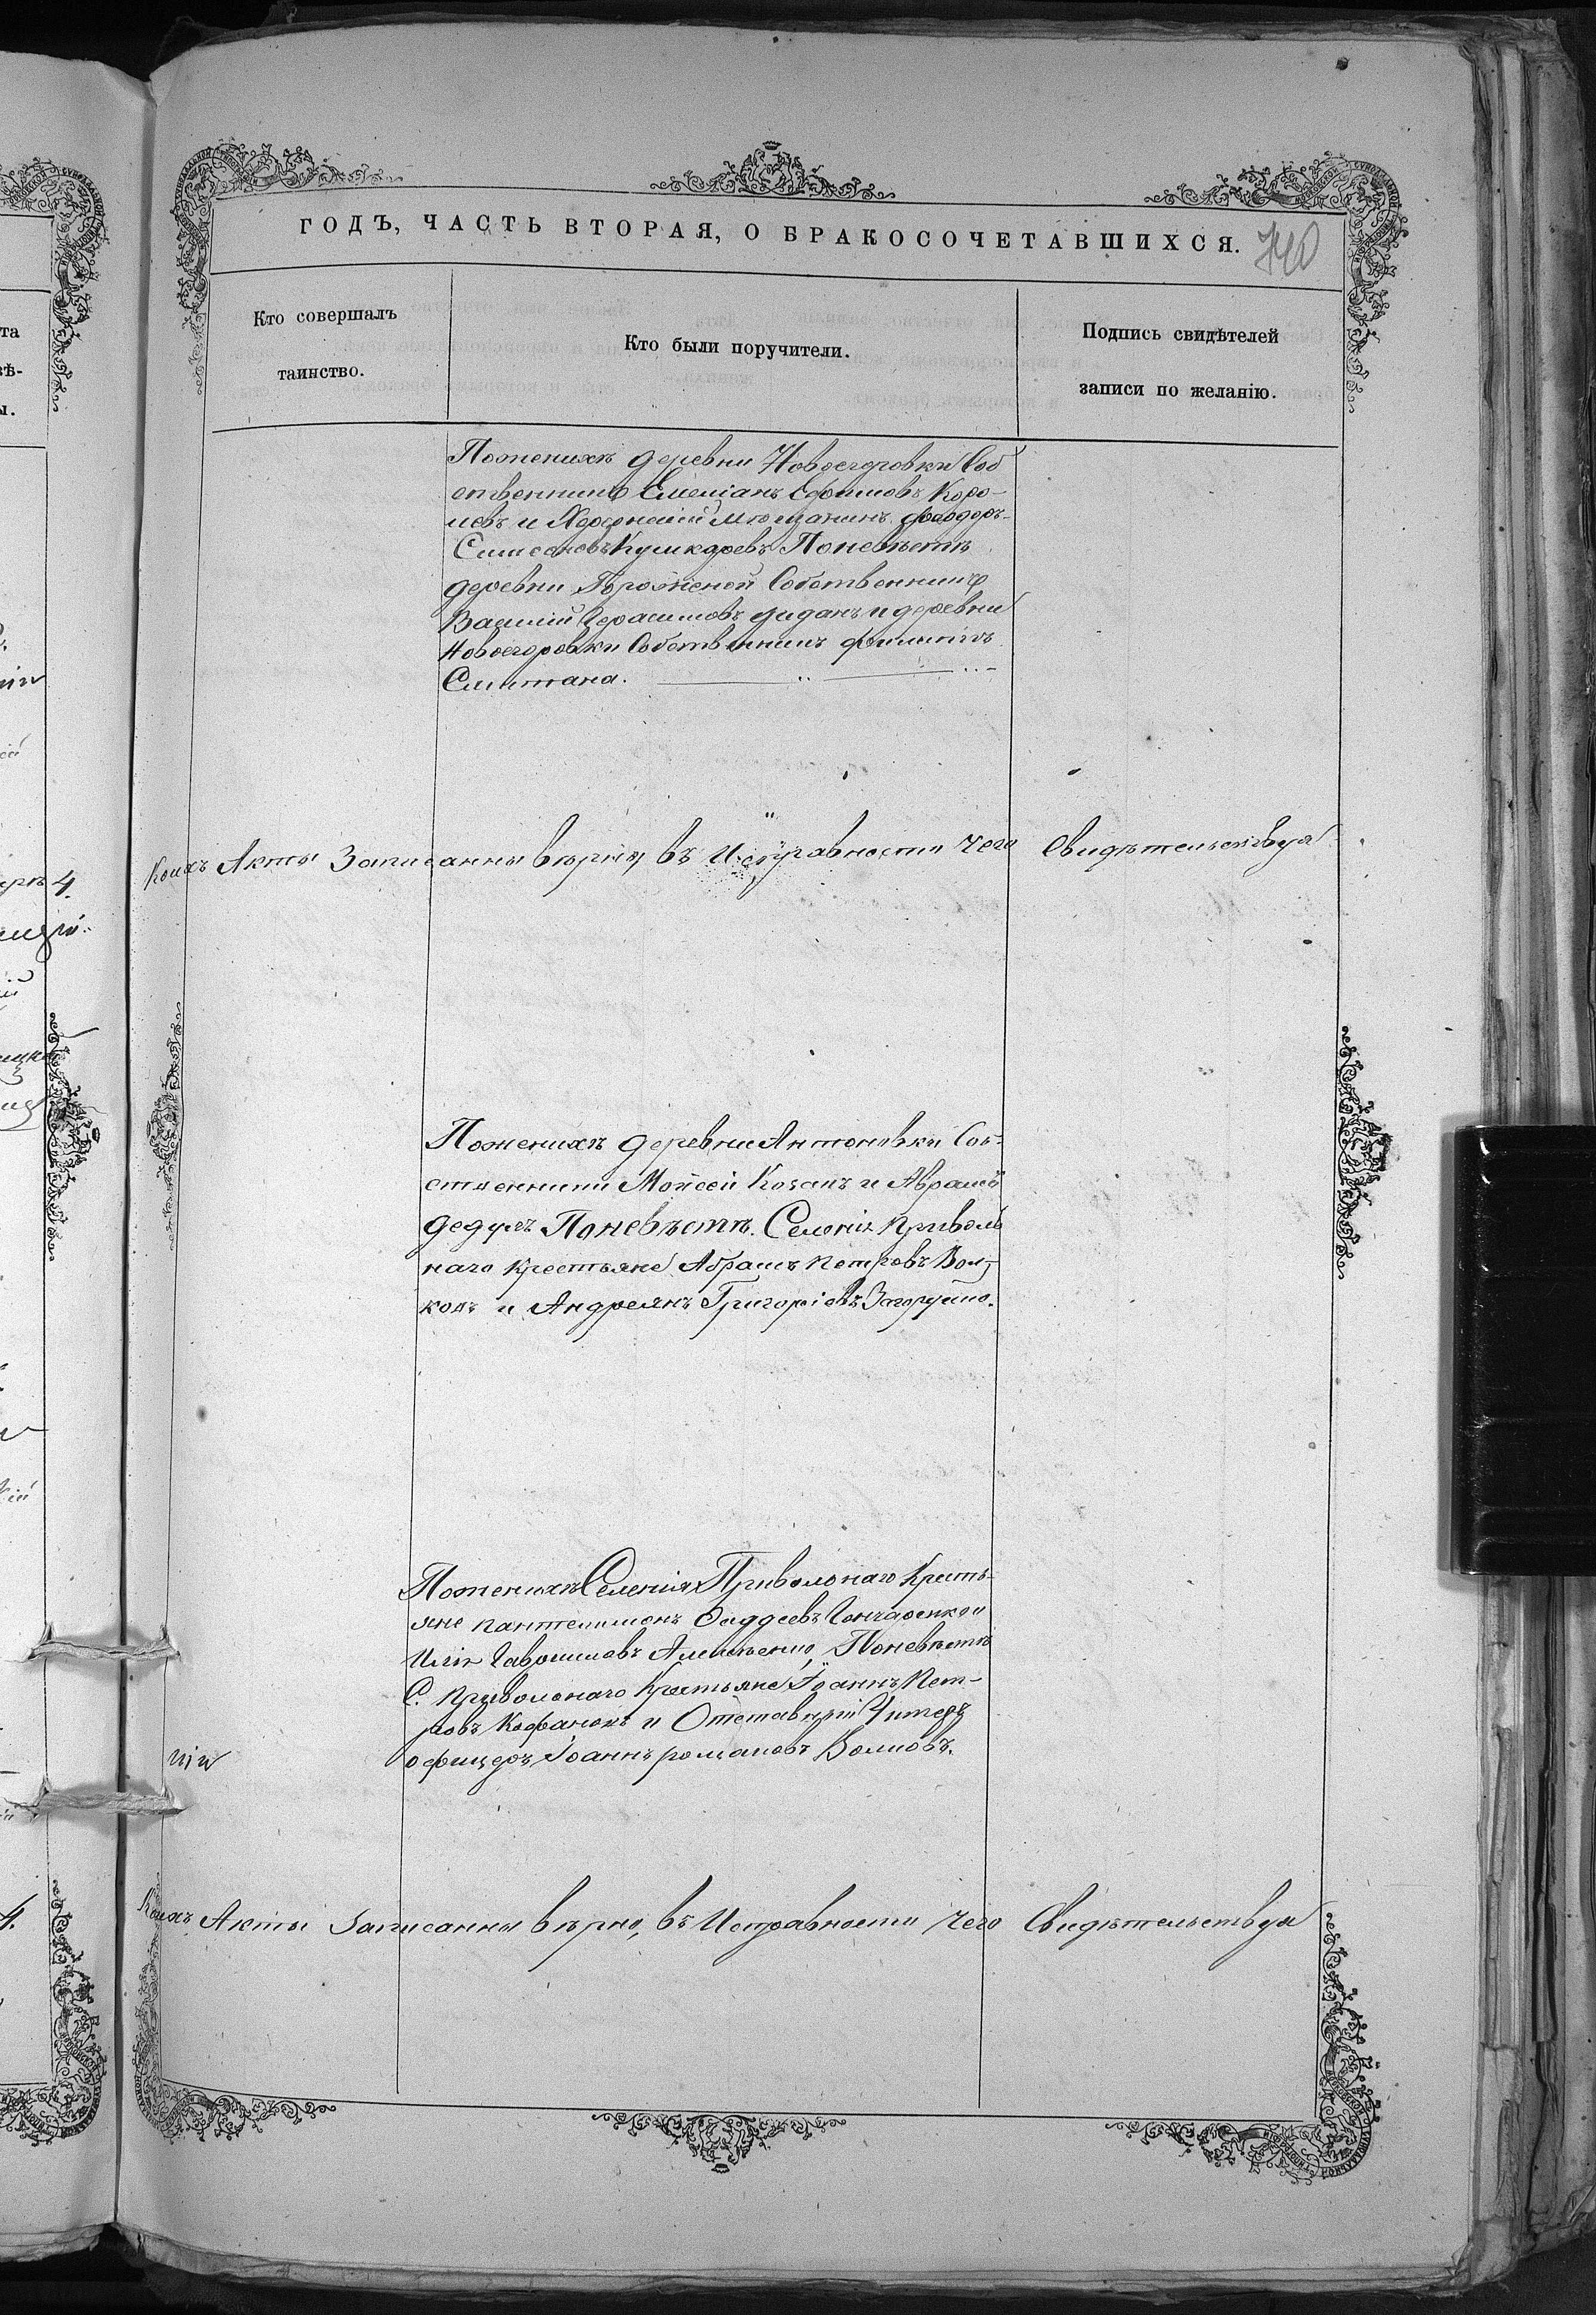 ГОДЪ, ЧАСТЬ ВТОРАЯ, О БРАКОСОЧЕТАВШИХСЯ. 740
Кто совершалъ
таинство.
Кто были поручители.
Подпись свидѣтелей
записи по желанію.
Поженихѣ деревни Новоегоровки Соб
ственники Емеліанъ Ефимовъ Коро-
левъ и Херсонскій мѣщанинъ Феодоръ
Симеоновъ Кушкаревъ Поневѣстѣ
деревни Гороженой Собственники
Василій Герасимовъ Диданъ и деревни
Новоегоровки Собственникъ Филиппъ
Сметана.
Коихъ Акты Записанны вѣрно, въ Исправности чего Свидѣтельствуя
Поженихѣ деревни Антоновки Соб-
ственники Мойсей Козакъ и Аврамъ
Дедулъ Поневѣстѣ. Селенія Приволь
наго крестьяне Абрамъ Петровъ Вол-
ковъ и Андреянъ Григоріевъ Загоруйко.
Поженихѣ Селенія Привольнаго Кресть-
яне Пантелимонъ Фаддеевъ Гончаренко и
Илія Гавриловъ Поневѣстѣ
С. Привольнаго Крестьяне Іоаннъ Пет-
ровъ Кафанокъ и Отставный Унтеръ
офицеръ Іоаннъ Романовъ Волковъ.
нія
Коихъ Акты Записанны вѣрно, въ Исправности чего Свидѣтельствуя